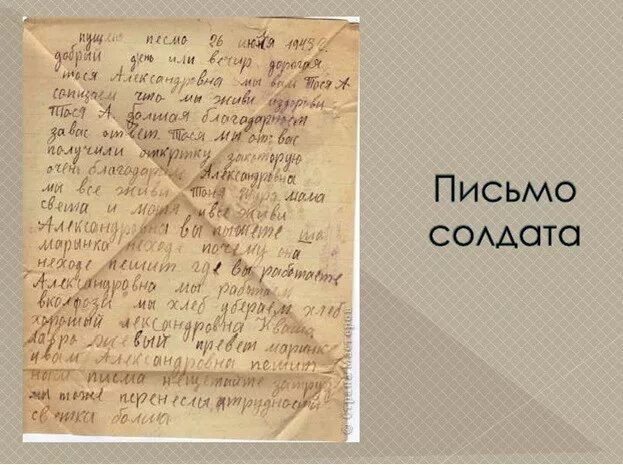 пущено песмо 26 июня 1943 г.
добрый день или вечир дорогая
тося Александровна мы вам Тося А
сопщаем что мы живи издорови
Тося А болшая благодарност
завас ответ Тося мы от вас
получили открытку закоторую
очень благодарим Александровна
мы все живи Тоня Шура мама
света и мотя ивсе живи
Александровна вы пишете што
марынка неходе почему она
неходе пешит где вы работаете
Александровна мы работаем
вколхози мы хлеб убераем хлеб
хороший лександровна
жевый превет маринке
ивам Александровна пешит
писма нещетайте
мы тоже перенеслы трудности
светка болша
Письмо
солдата